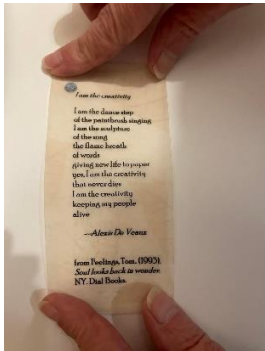 I am the creativity
I am the dance step
of the paintbrush singing
I am the sculpture
of the song
the flame breath
of words
giving new life to paper
yes, I am the creativity
that never dies
I am the creativity
keeping my people
alive
—Alexis De Veaux
from Feelings, Tom. (1993).
Soul looks back in wonder.
NY: Dial Books.